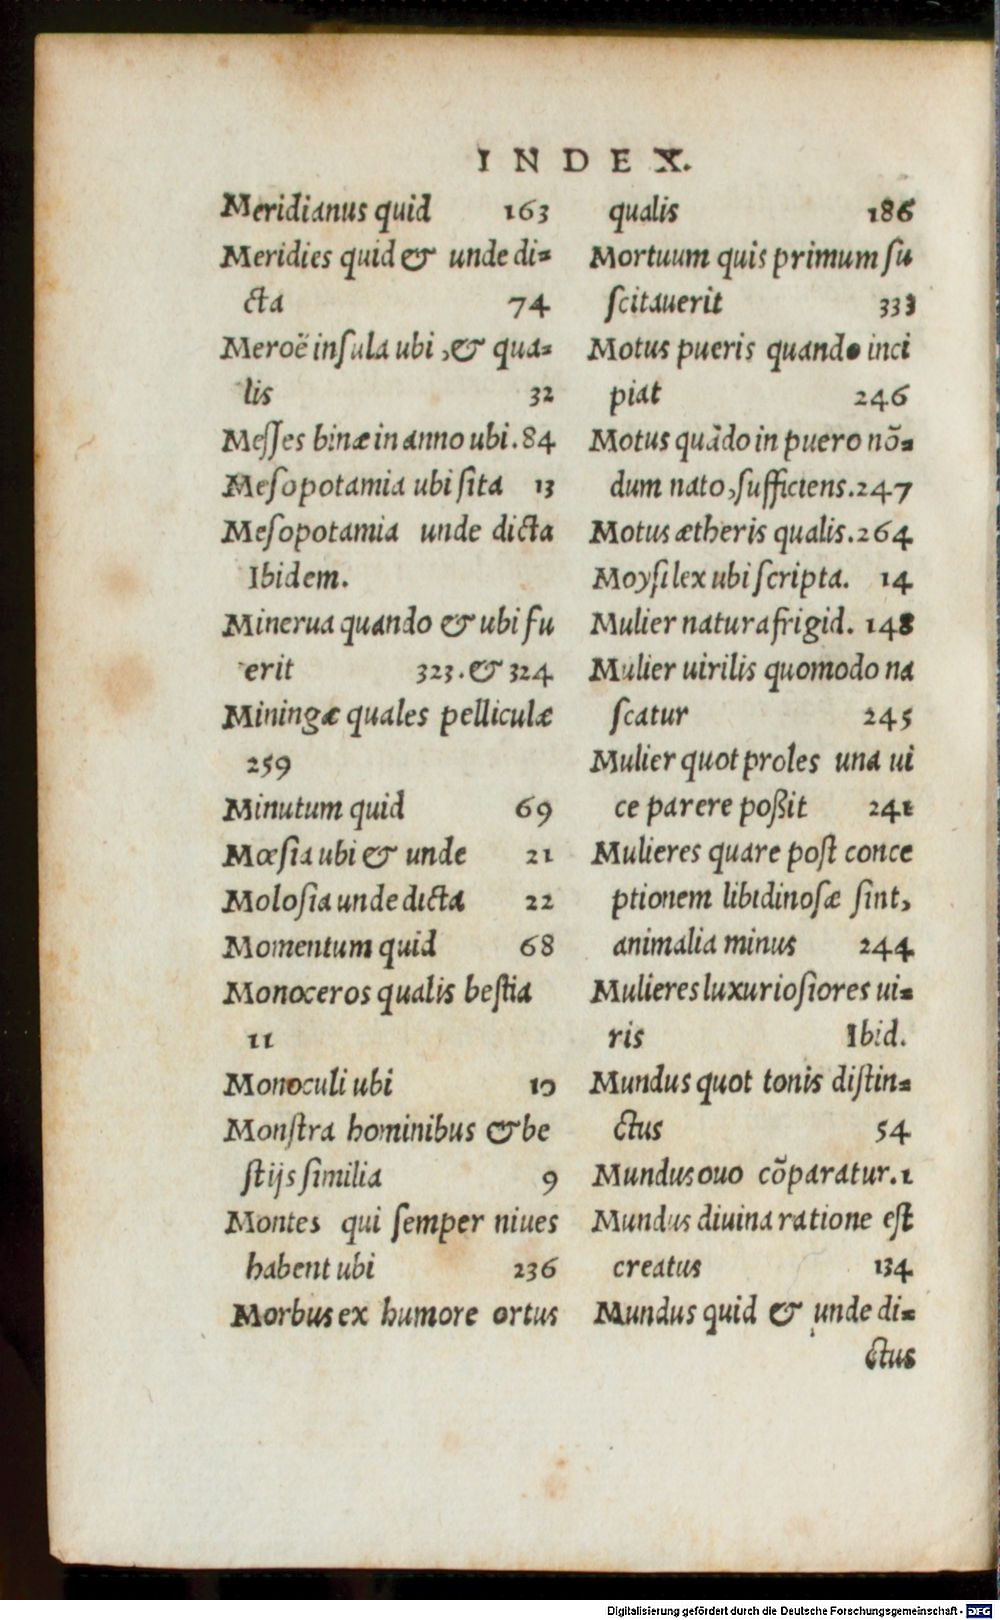 INDEX.
Meridianus quid 163
Meridies quid & unde di-
cta 74
Meroë insula ubi, & qua-
lis 32
Messes binæ in anno ubi. 84
Mesopotamia ubi sita 13
Mesopotamia unde dicta
Ibidem.
Minerua quando & ubi fu
erit 323. & 324
Miningæ quales pelliculæ
259
Minutum quid 69
Mœsia ubi & unde 21
Molosia unde dicta 22
Momentum quid 68
Monoceros qualis bestia
11
Monoculi ubi 10
Monstra hominibus & be
stijs similia 9
Montes qui semper niues
habent ubi 236
Morbus ex humore ortus
qualis 186
Mortuum quis primum su
scitauerit 333
Motus pueris quando inci
piat 246
Motus quãdo in puero nõ-
dum nato, sufficiens. 247
Motus ætheris qualis. 264
Moysi lex ubi scripta. 14
Mulier natura frigid. 148
Mulier uirilis quomodo na
scatur 245
Mulier quot proles una ui
ce parere poßit 241
Mulieres quare post conce
ptionem libidinosæ sint,
animalia minus 244
Mulieres luxuriosiores ui-
ris Ibid.
Mundus quot tonis distin-
ctus 54
Mundus ouo cõparatur. 1
Mundus diuina ratione est
creatus 134
Mundus quid & unde di-
ctus
Digitalisierung gefördert durch die Deutsche Forschungsgemeinschaft - DFG